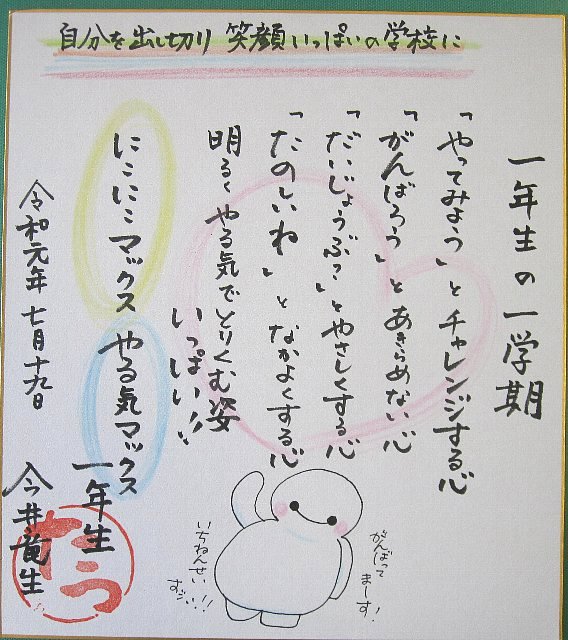 自分を出し切り 笑顔いっぱいの学校に
一年生の一学期
「やってみよう」とチャレンジする心
「がんばろう」とあきらめない心
「だいじょうぶ?」とやさしくする心
「たのしいね」となかよくする心
明るくやる気でとりくむ姿
いっぱい!!
にこにこマックス やる気マックス
令和元年 七月十九日
一年生
今井竜生
がんばって
まーす!
いちねんせい
すごい!!